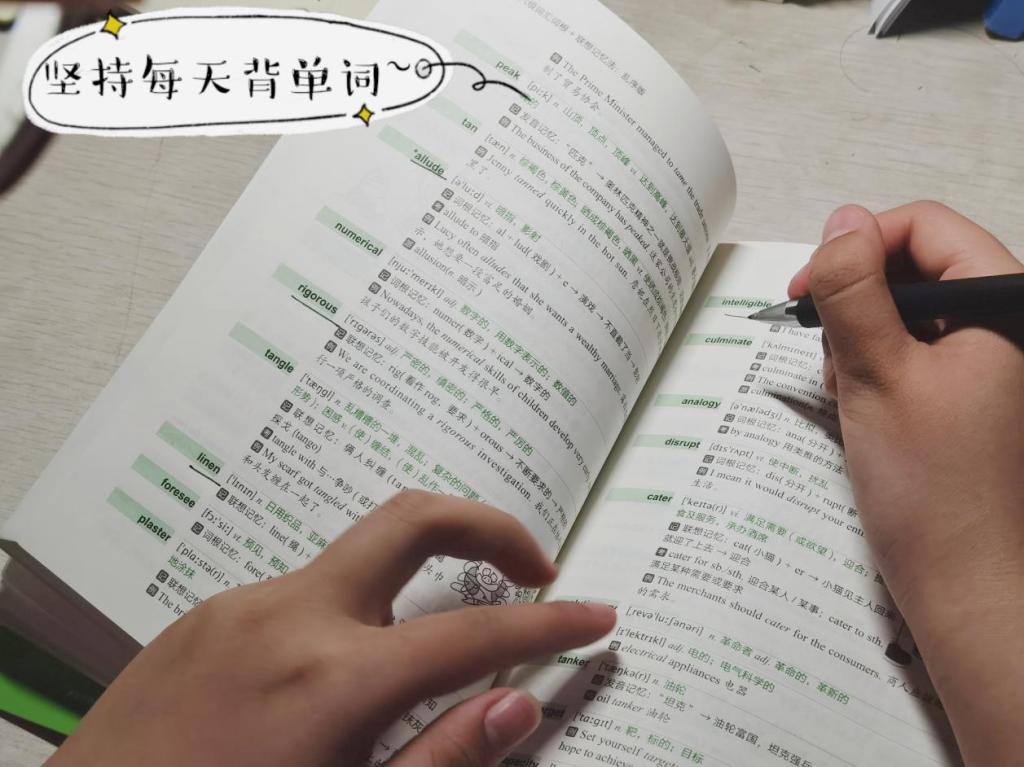 坚持每天背单词~
The Prime Minister managed to tame the trade
制了贸易协会。
peak
[piːk] n. 山顶，顶点，顶峰 vi. 达到高峰，达到最大量
发音记忆："匹克"→奥林匹克精神之一就是
The business of the company has peaked. 这家公司
tan
[tæn] n. 棕褐色，棕黄色，晒成棕褐色，晒黑
Jenny tanned quickly in the hot sun.
黑了。
*allude
[əˈluːd] vi. 暗指，影射
词根记忆：al + lud(戏剧) + e → 演戏 → 不直截了当 →
allude to 暗指
Lucy often alludes that she wants a wealthy marriage.
示，她想要一段富足的婚姻。
allusion(n. 暗示)
numerical
[njuːˈmerɪkl] adj. 数字的；用数字表示的；数值的
词根记忆：numer(数字) + ical → 数字的
Nowadays, the numerical skills of children develop very
孩子们的数字技能被开发得很早。
rigorous
[ˈrɪɡərəs] adj. 严密的，缜密的；严格的，严厉的
联想记忆：rig(看作rog，要求) + orous → 不断要求的 →
We are coordinating a rigorous investigation. 我们正在
行一项严格的调查。
tangle
[ˈtæŋɡl] n. 乱糟糟的一堆，混乱；复杂的问题
形势)；困惑 v. (使)缠结；(使)乱作
联想记忆：俩人纠缠(ta
探戈(tango)
tangle with 与…争吵(或打
My scarf got tangled with
和头发缠在一起了。
linen
[ˈlɪnɪn] n. 日用织品，亚麻
联想记忆：line(绳) +
foresee
[fɔːˈsiː] vt. 预见，预知
词根记忆：fore(
plaster
[ˈplɑːstə(r)] n.
地涂抹
联想记忆
The br
intelligible
I have fa
culminate
[ˈkʌlmɪneɪt]
词根记忆：c
culminate in (
The convention
culmination
analogy
[əˈnælədʒi] n. 比拟，类比
词根记忆：ana(分开) +
by analogy 用类推的方法
disrupt
[dɪsˈrʌpt] vt. 使中断，扰乱
词根记忆：dis(分开) + rupt(断
I mean it would disrupt your ent
生活。
cater
[ˈkeɪtə(r)] vi. 满足需要(或欲望)，迎合；提
食及服务，承办酒席
联想记忆：cat(小猫) + er → 小猫见主人回来
就迎了上去 → 迎合
cater for sb./sth. 迎合某人/某事；cater to sth.
满足某种需要或要求
The merchants should cater for the consumers. 商人应
的需求。
[ˌrevəˈluːʃənəri] n. 革命者 adj. 革命的，革新的
[ɪˈlektrɪkl] adj. 电的；电气科学的
electrical appliances 电器
tanker
[ˈtæŋkə(r)] n. 油轮
发音记忆："坦克"→ 油轮富国，坦克强兵
oil tanker 油轮
[ˈtɑːɡɪt] n. 靶，标的；目标
Set yourself targets
hope to achieve